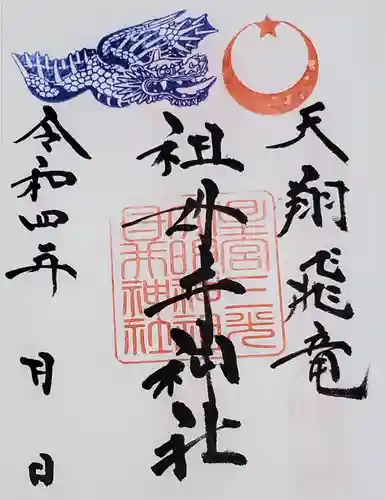 天翔飛竜
祖母井神社
令和四年 月 日